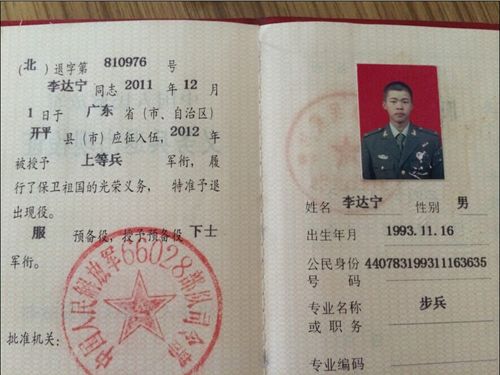 （北）退字第 810976 号
李达宁 同志 2011 年 12 月
1 日于 广东 省（市、自治区）
开平 县（市）应征入伍，2012 年
被授予 上等兵 军衔，履
行了保卫祖国的光荣义务，特准予退
出现役。
服 预备役，授予预备役 下士
军衔。
批准机关：
中国人民解放军66028部队司令部
姓名 李达宁 性别 男
出生年月 1993.11.16
公民身份 440783199311163635
号码
专业名称 步兵
或职务
专业编码